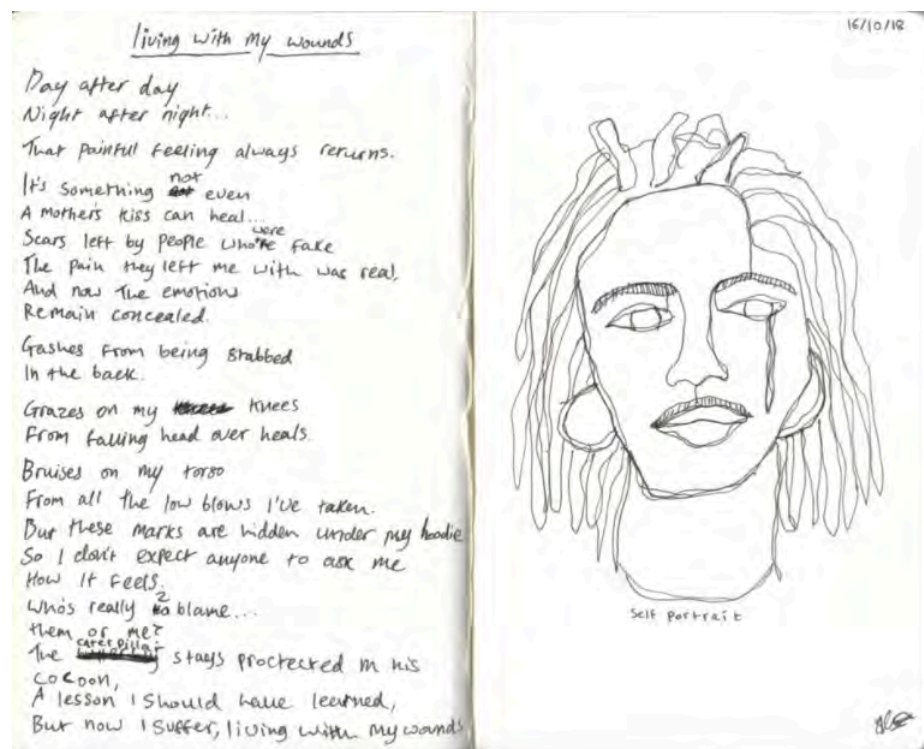 living with my wounds
Day after day
Night after night...
That painful feeling always returns.
It's something not even
A mothers kiss can heal...
Scars left by people who were fake
The pain they left me with was real,
And now the emotions
Remain concealed.
Gashes from being stabbed
In the back.
Grazes on my knees
From falling head over heals.
Bruises on my torso
From all the low blows I've taken.
But these marks are hidden under my hoodie
So I don't expect anyone to ask me
How it feels.
Who's really 2 blame...
them or me?
The caterpillar stays proctected in his
cocoon,
A lesson I should have learned,
But now I suffer, living with my wounds
16/10/18
Self portrait